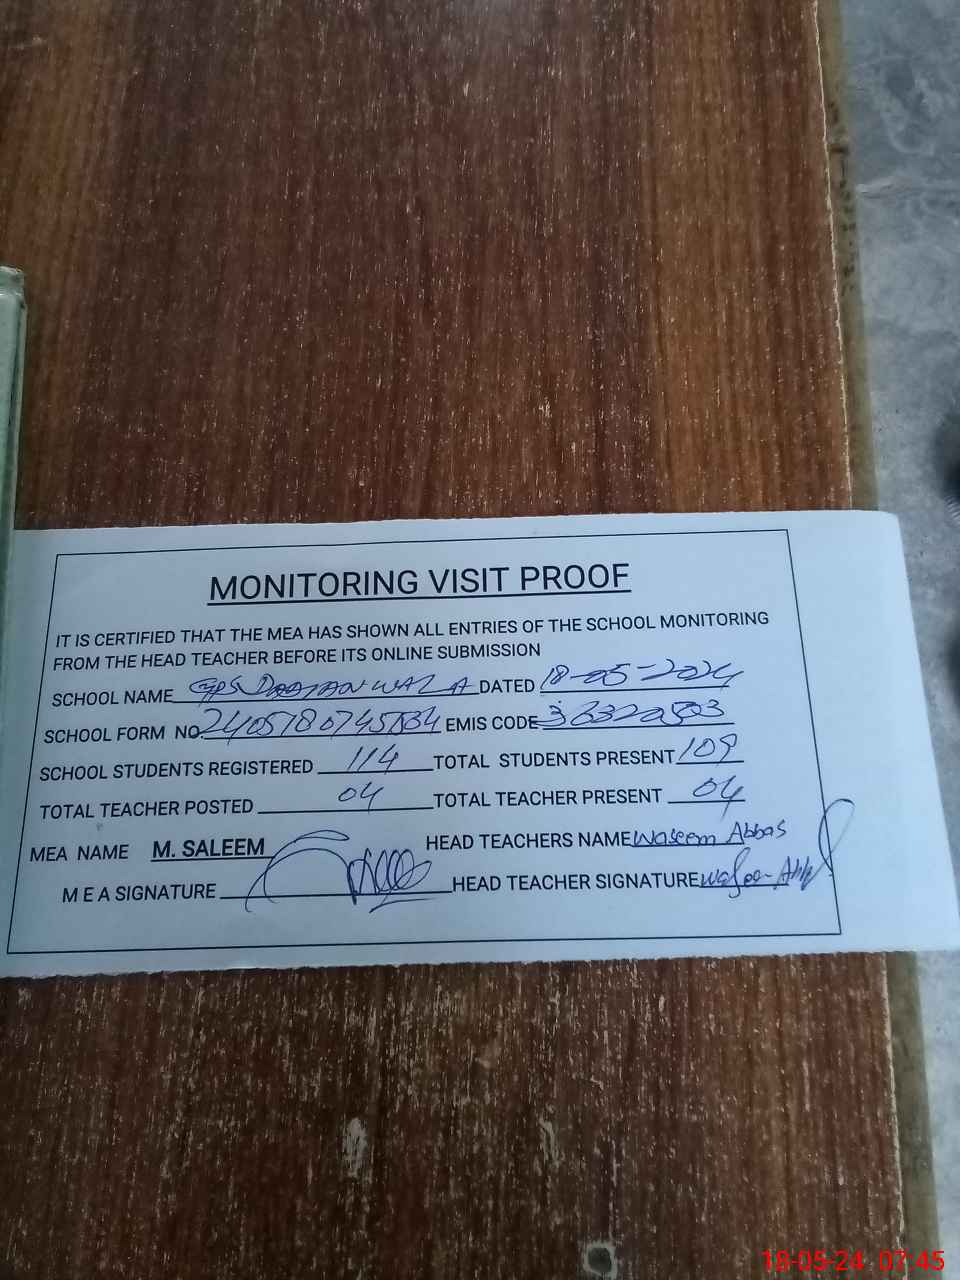 MONITORING VISIT PROOF
IT IS CERTIFIED THAT THE MEA HAS SHOWN ALL ENTRIES OF THE SCHOOL MONITORING
FROM THE HEAD TEACHER BEFORE ITS ONLINE SUBMISSION
SCHOOL NAME GPS WALA DATED 18-05-2024
SCHOOL FORM NO. EMIS CODE
SCHOOL STUDENTS REGISTERED 114 TOTAL STUDENTS PRESENT 109
TOTAL TEACHER POSTED 04 TOTAL TEACHER PRESENT 04
MEA NAME M. SALEEM HEAD TEACHERS NAME Waseem Abbas
M E A SIGNATURE HEAD TEACHER SIGNATURE
18-05-24 07:45